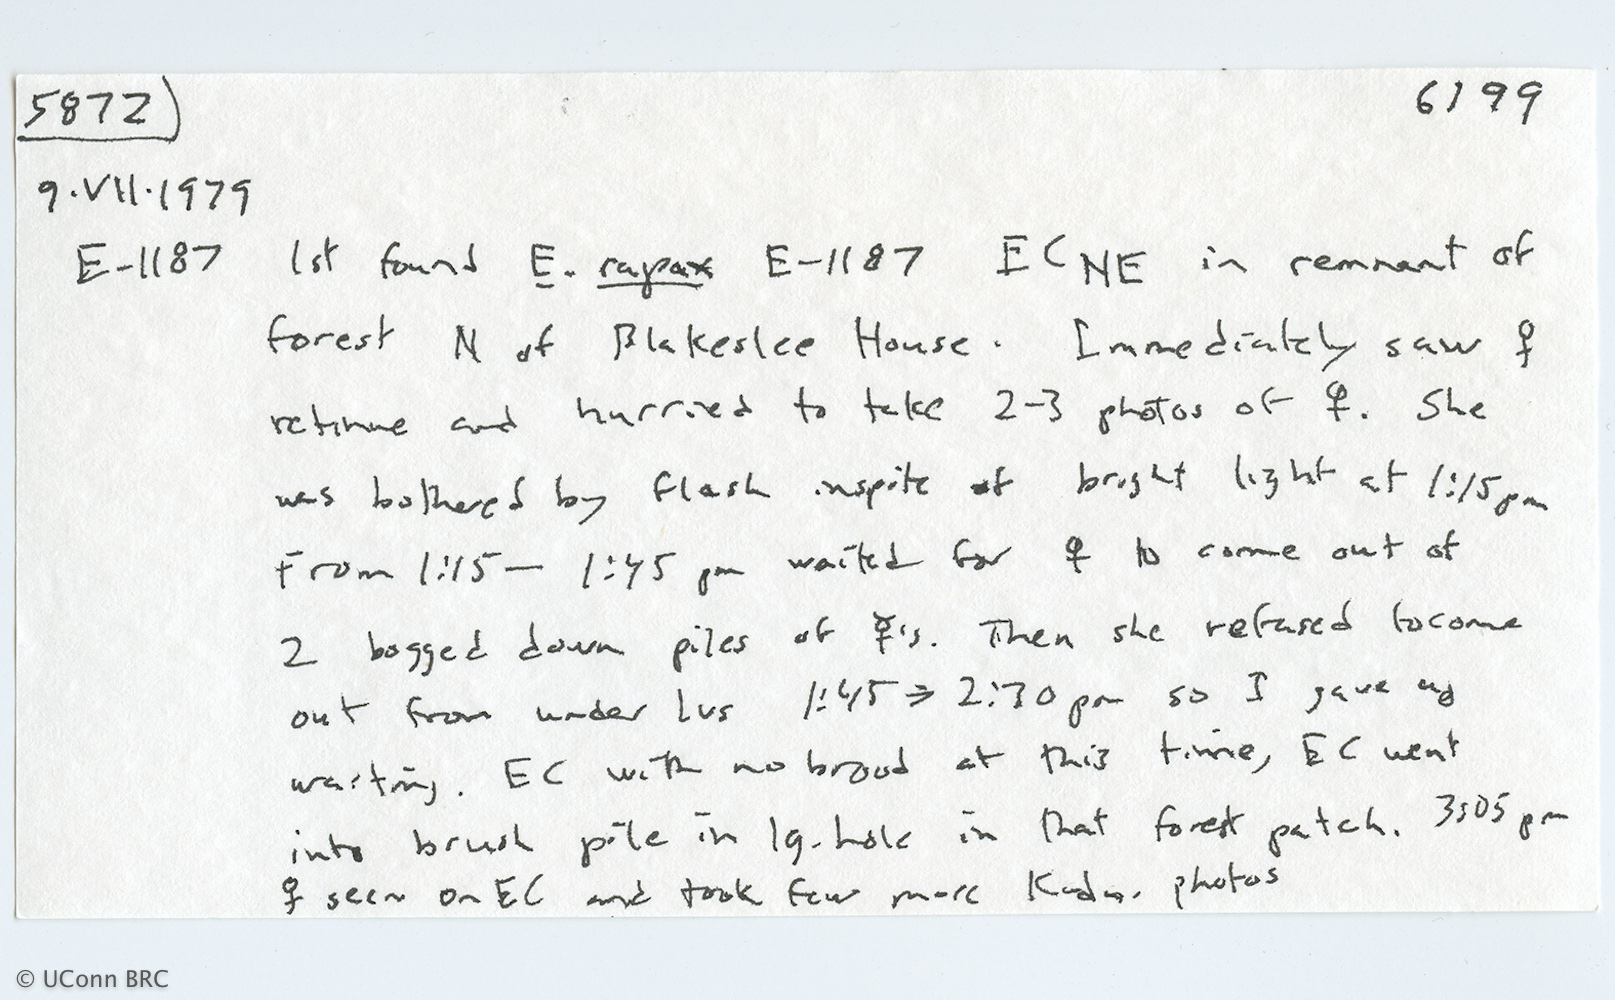 5872 6199
9.VII.1979
E-1187 1st found E. rapax E-1187 EC NE in remnant of
forest N of Blakeslee House. Immediately saw ♀
retinue and hurried to take 2-3 photos of ♀. She
was bothered by flash inspite of bright light at 1:15pm
From 1:15 — 1:45 pm waited for ♀ to come out of
2 bogged down piles of ☿'s. Then she refused to come
out from under lvs 1:45 → 2:30 pm so I gave up
waiting. EC with no brood at this time, EC went
into brush pile in lg. hole in that forest patch. 3:05 pm
♀ seen on EC and took few more Koda. photos
© UConn BRC